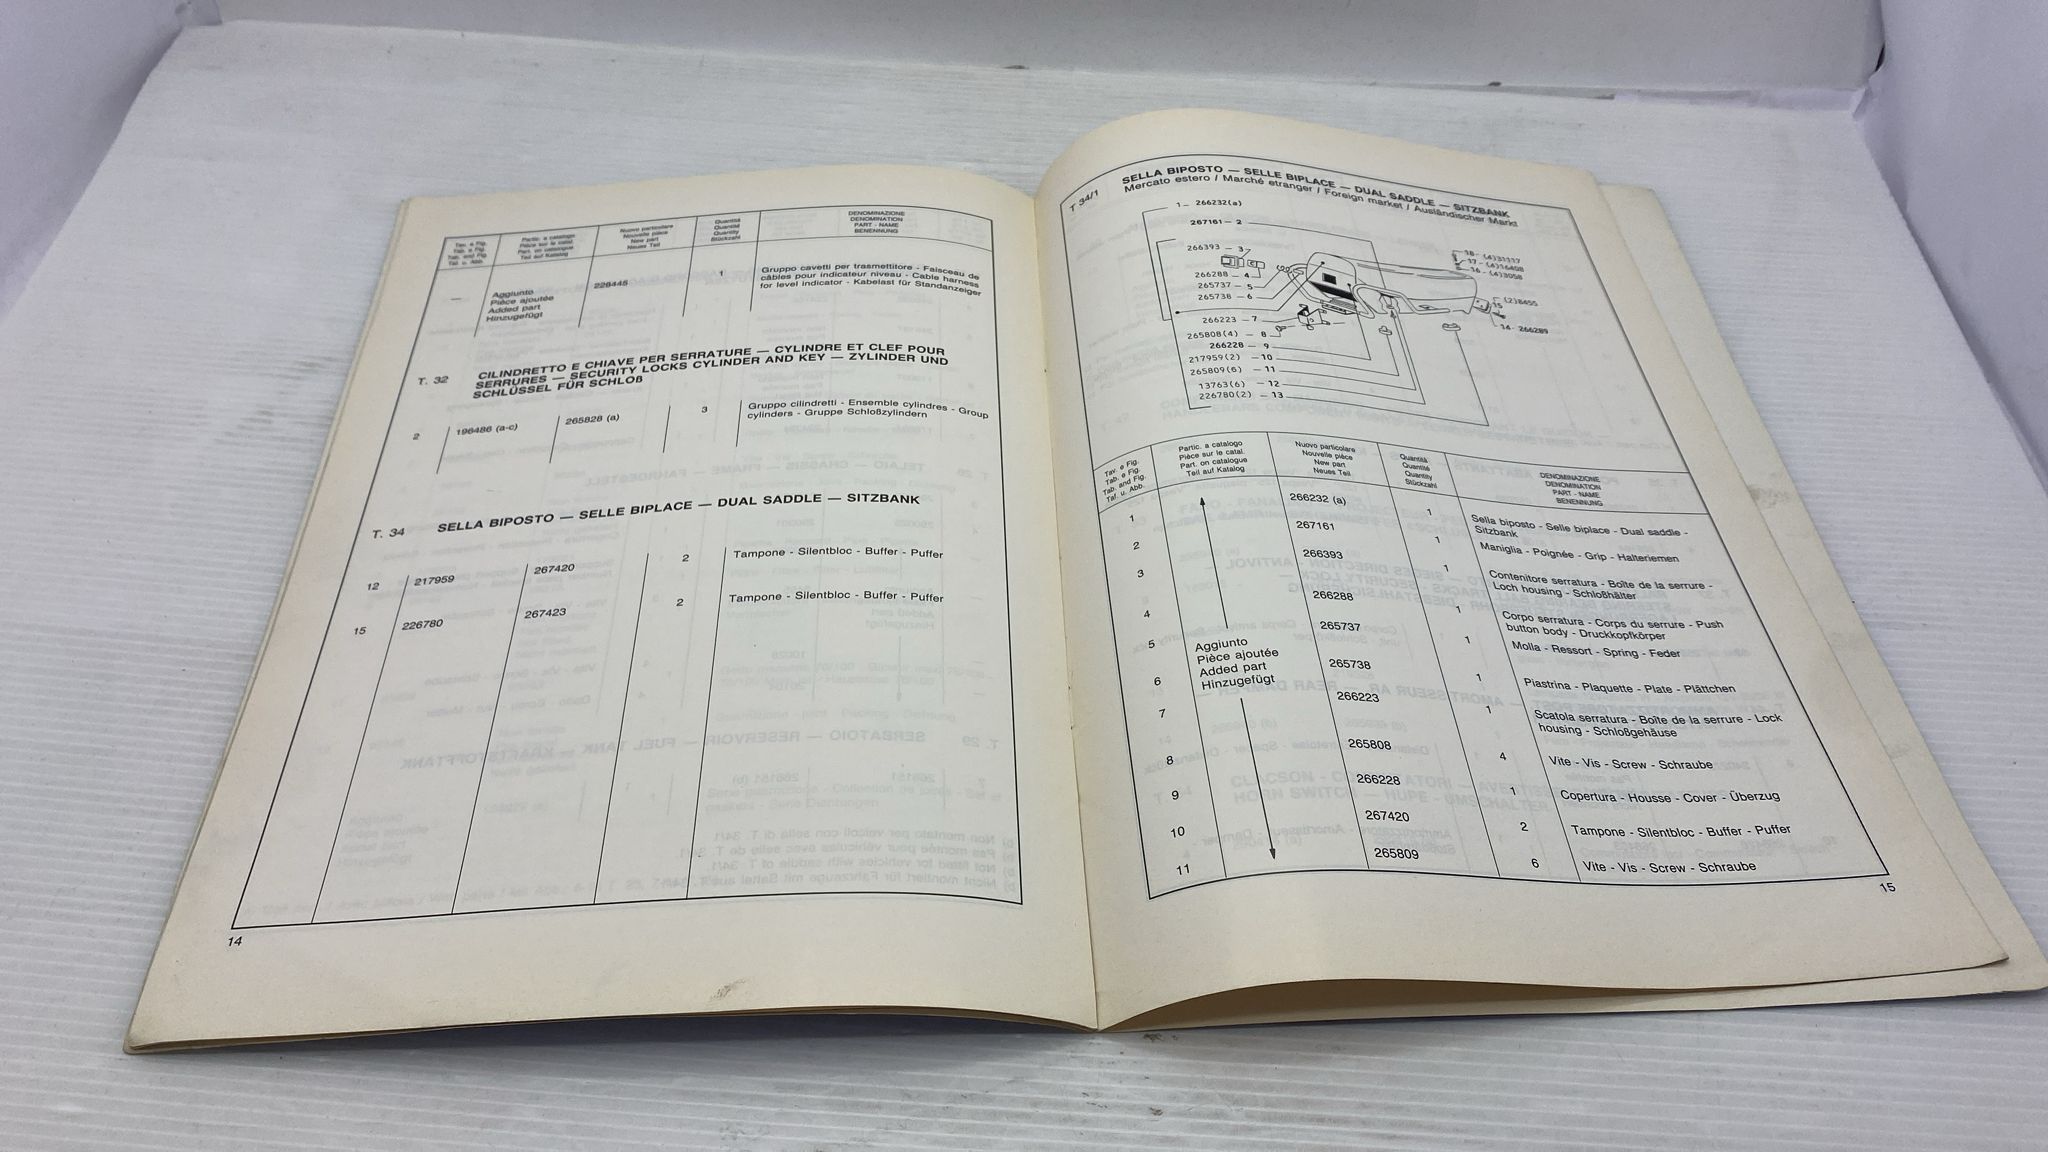 Tav. e Fig.
Tab. e Fig.
Tab. and Fig.
Taf. u. Abb.
Partic. a catalogo
Pièce sur le catal.
Part. on catalogue
Teil auf Katalog
Nuovo particolare
Nouvelle pièce
New part
Neues Teil
Quantità
Quantité
Quantity
Stückzahl
DENOMINAZIONE
DENOMINATION
PART - NAME
BENENNUNG
—
Aggiunto
Pièce ajoutée
Added part
Hinzugefügt
228445
1
Gruppo cavetti per trasmettitore - Faisceau de
câbles pour indicateur niveau - Cable harness
for level indicator - Kabelast für Standanzeiger
T. 32
CILINDRETTO E CHIAVE PER SERRATURE — CYLINDRE ET CLEF POUR
SERRURES — SECURITY LOCKS CYLINDER AND KEY — ZYLINDER UND
SCHLÜSSEL FÜR SCHLOß
2 196486 (a-c) 265828 (a) 3
Gruppo cilindretti - Ensemble cylindres - Group
cylinders - Gruppe Schloßzylindern
T. 34 SELLA BIPOSTO — SELLE BIPLACE — DUAL SADDLE — SITZBANK
12 217959 267420 2 Tampone - Silentbloc - Buffer - Puffer
15 226780 267423 2 Tampone - Silentbloc - Buffer - Puffer
14
T 34/1
SELLA BIPOSTO — SELLE BIPLACE — DUAL SADDLE — SITZBANK
Mercato estero / Marché etranger / Foreign market / Ausländischer Markt
1 - 266232(a)
267161 - 2
266393 - 3
266288 - 4
265737 - 5
265738 - 6
266223 - 7
265808(4) - 8
266228 - 9
217959(2) - 10
265809(6) - 11
13763(6) - 12
226780(2) - 13
18 - (4)31117
17 - (4)16408
16 - (4)3058
(2)8455
15
14 - 266289
Tav. e Fig.
Tab. e Fig.
Tab. and Fig.
Taf. u. Abb.
Partic. a catalogo
Pièce sur le catal.
Part. on catalogue
Teil auf Katalog
Nuovo particolare
Nouvelle pièce
New part
Neues Teil
Quantità
Quantité
Quantity
Stückzahl
DENOMINAZIONE
DENOMINATION
PART - NAME
BENENNUNG
Aggiunto
Pièce ajoutée
Added part
Hinzugefügt
1 266232 (a) 1 Sella biposto - Selle biplace - Dual saddle -
Sitzbank
2 267161 1 Maniglia - Poignée - Grip - Halteriemen
3 266393 1 Contenitore serratura - Boîte de la serrure -
Loch housing - Schloßhälter
4 266288 1 Corpo serratura - Corps du serrure - Push
button body - Druckkopfkörper
5 265737 1 Molla - Ressort - Spring - Feder
6 265738 1 Piastrina - Plaquette - Plate - Plättchen
7 266223 1 Scatola serratura - Boîte de la serrure - Lock
housing - Schloßgehäuse
8 265808 4 Vite - Vis - Screw - Schraube
9 266228 1 Copertura - Housse - Cover - Überzug
10 267420 2 Tampone - Silentbloc - Buffer - Puffer
11 265809 6 Vite - Vis - Screw - Schraube
15